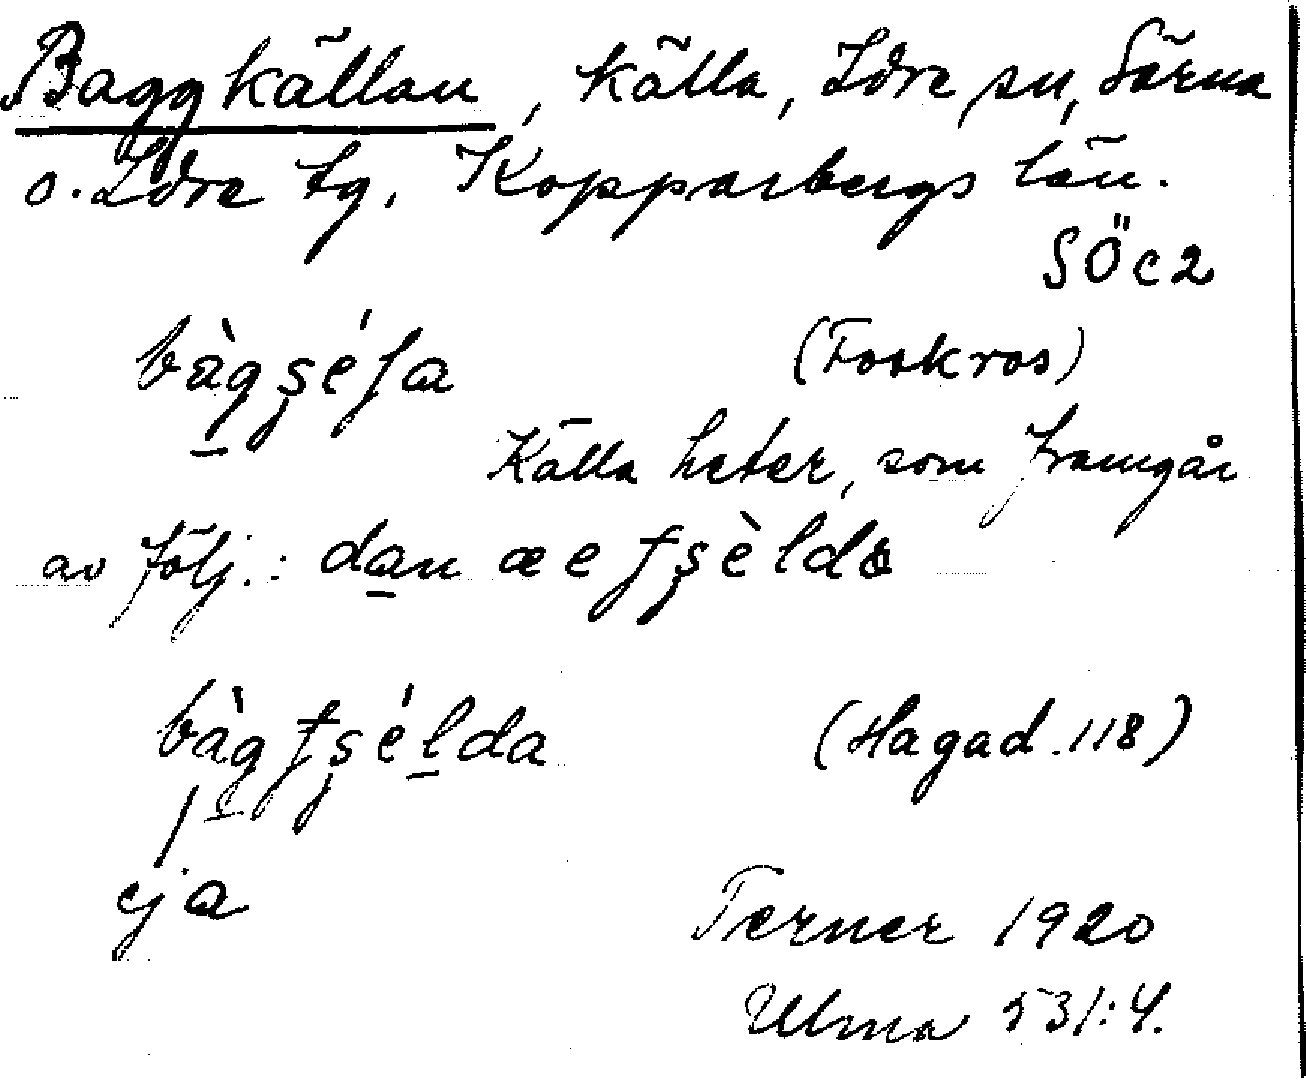 Baggkällan, källa, Idre sn, Särna
o. Idre tg, Kopparbergs län.
SÖc2
(Foskros)
Källa heter, som framgår
av följ.: dan æe
(Hagad. 118)
ej a
Terner 1920
Ulma 531:4.